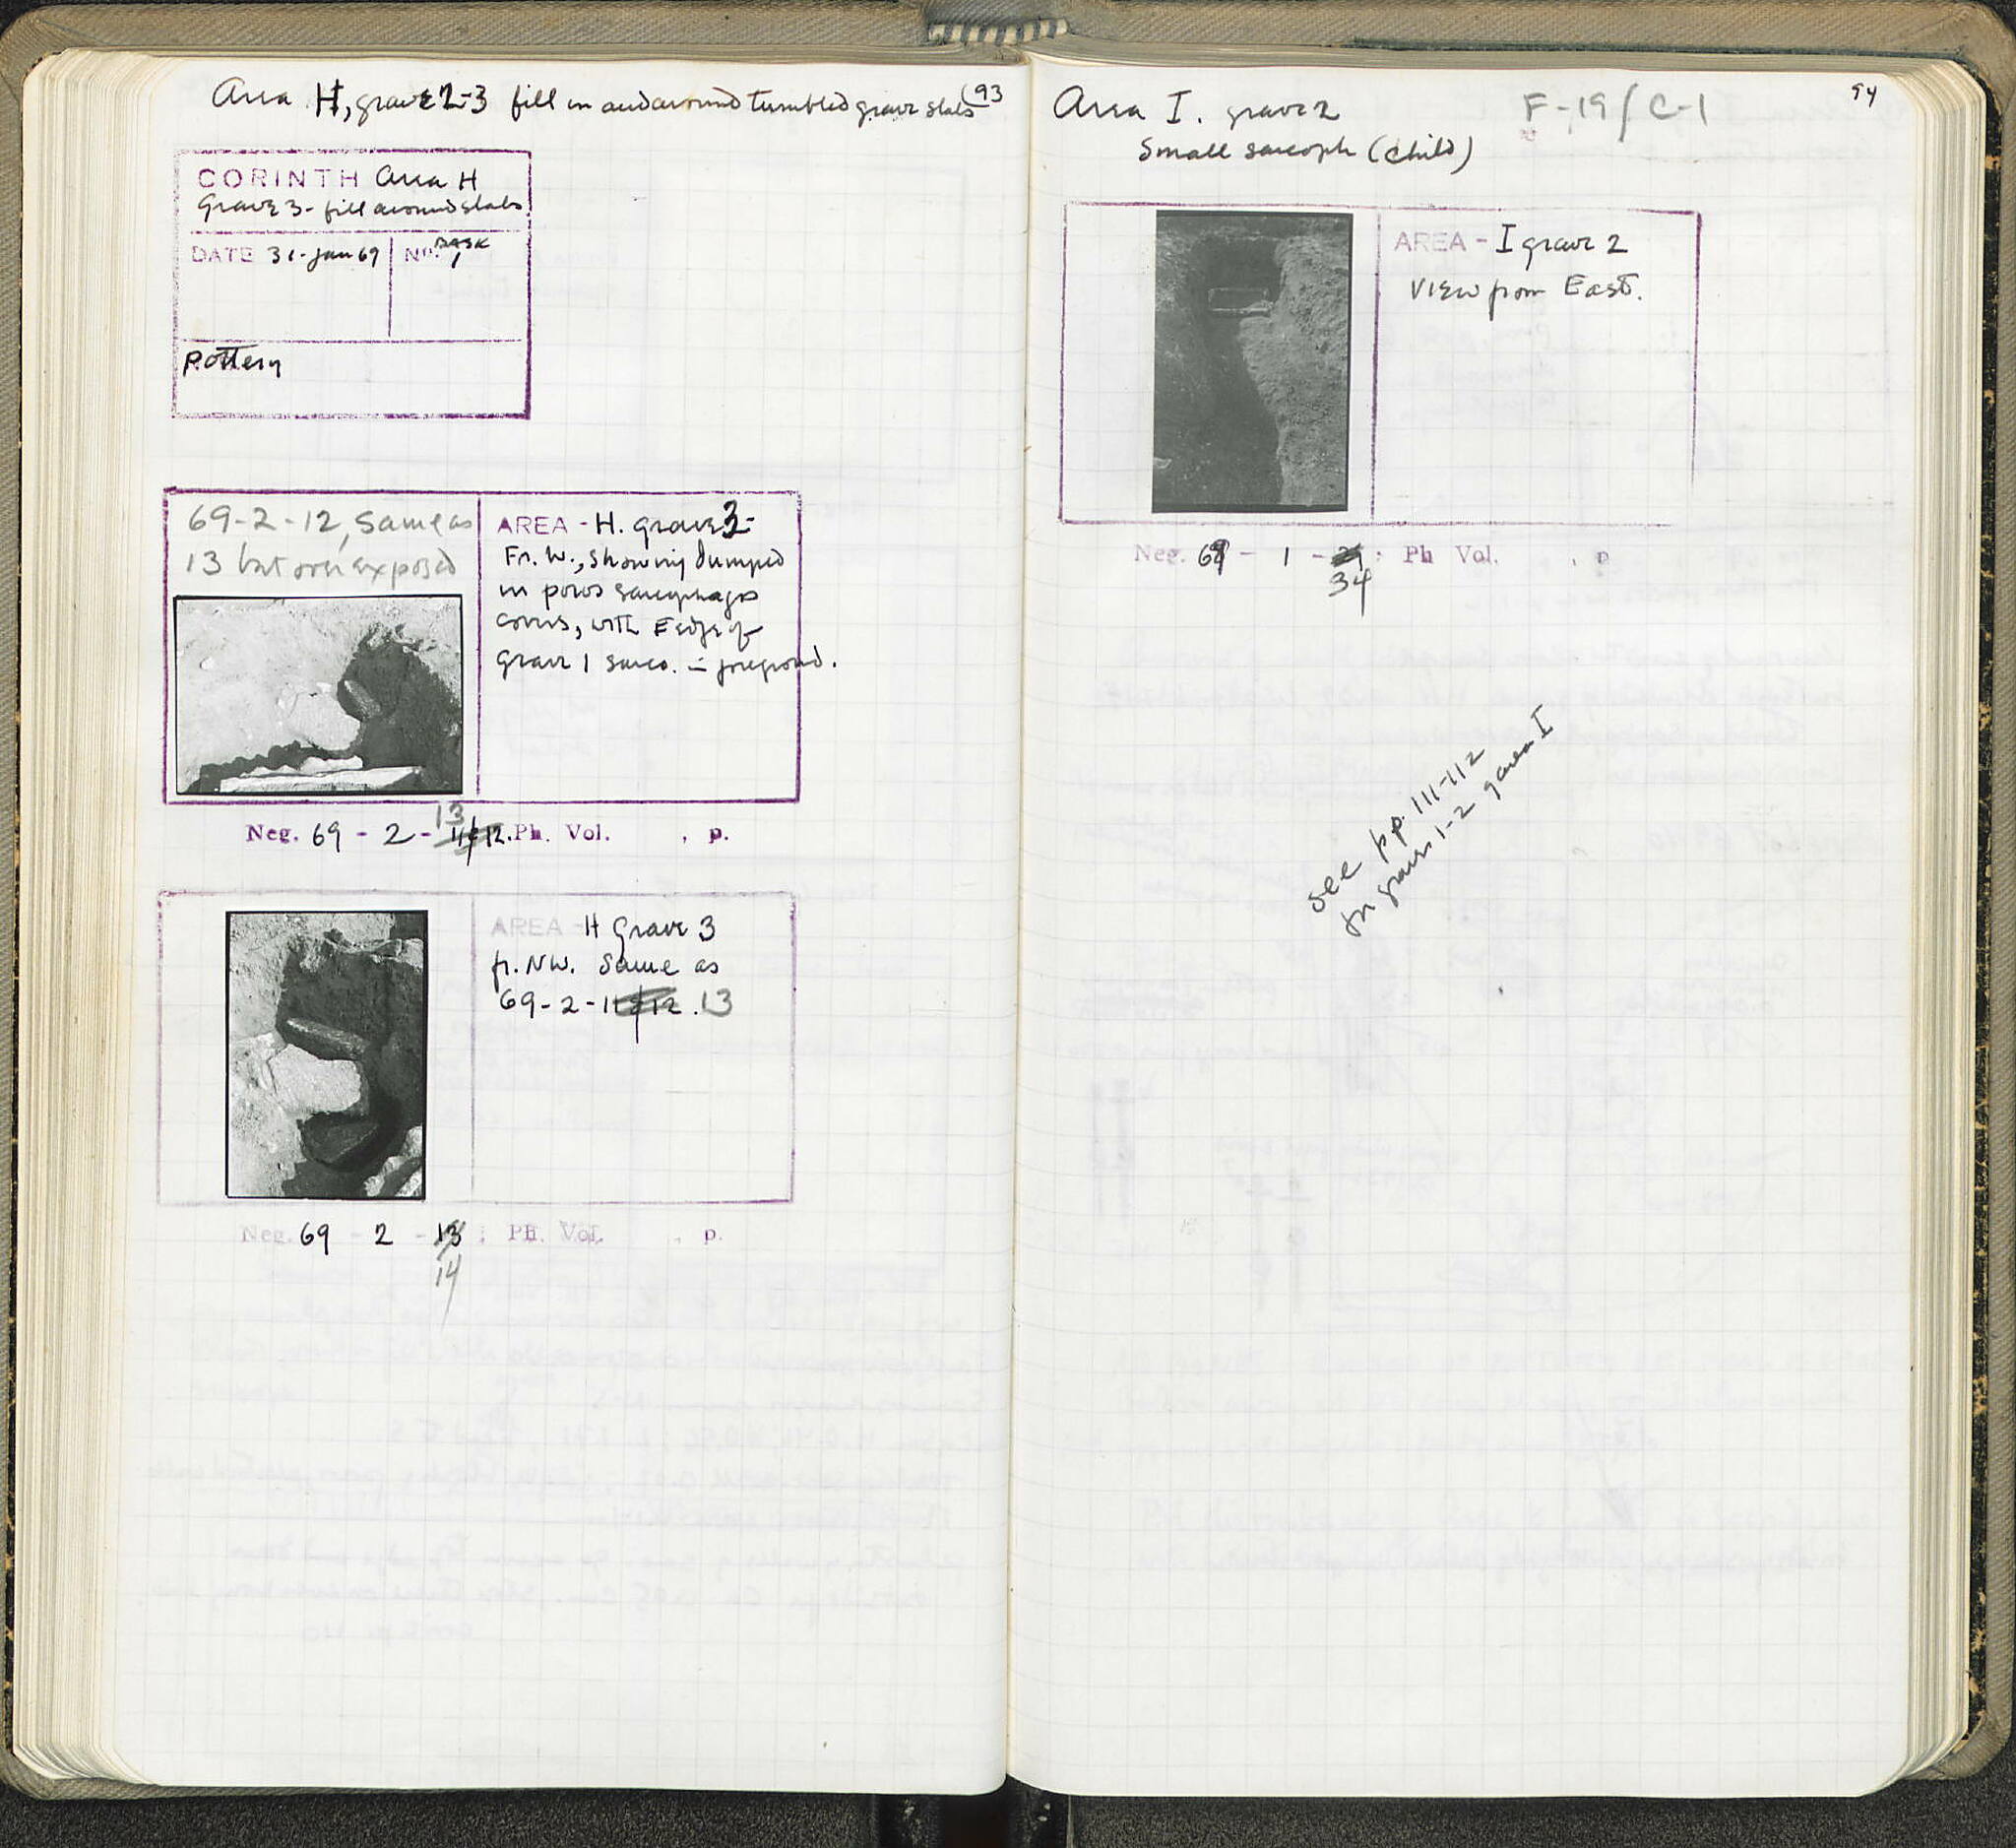 Area H, grave 2-3 fill in and around tumbled grave slabs
93
CORINTH Area H
Grave 3- fill around slabs
DATE 31-Jan 69 No. BASK 1
Pottery
69-2-12, same as
13 but over exposed
AREA - H. Grave 3-
Fr. W., showing dumped
in poros sarcophagos
covers, with E edge of
Grave 1 sarco. in foreground.
13
Neg. 69 - 2 - 11 & 12. Ph. Vol. , p.
AREA - H Grave 3
fr. NW. Same as
69-2-11 & 12. 13
Neg. 69 - 2 - 13 ; Ph. Vol. , p.
14
Area I. grave 2
F-19/C-1
94
Small sarcoph (child)
AREA - I grave 2
View from East.
Neg. 69 - 1 - ; Ph Vol. , p
34
see pp. 111-112
for graves 1-2 of area I